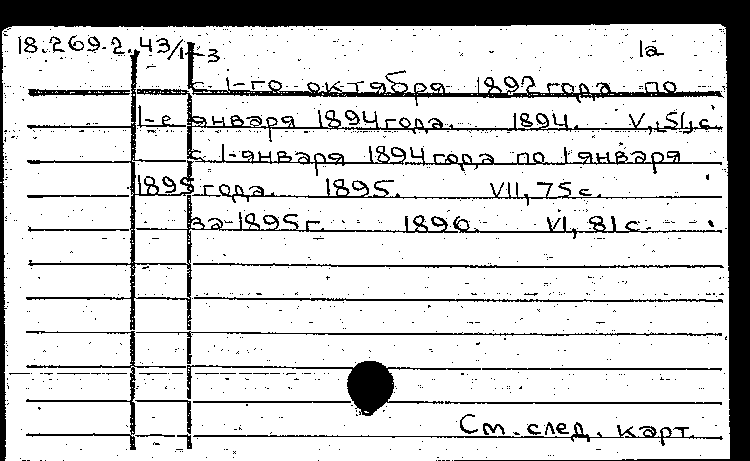 18.269.2.43/1-3 1а
с 1-го октября 1892 года по
1-е января 1894 года. 1894. V, 51, с
с 1-января 1894 года по 1 января
1895 года. 1895. VII, 75 с.
за 1895 г. 1896. VI, 81 с.
См. след. карт.